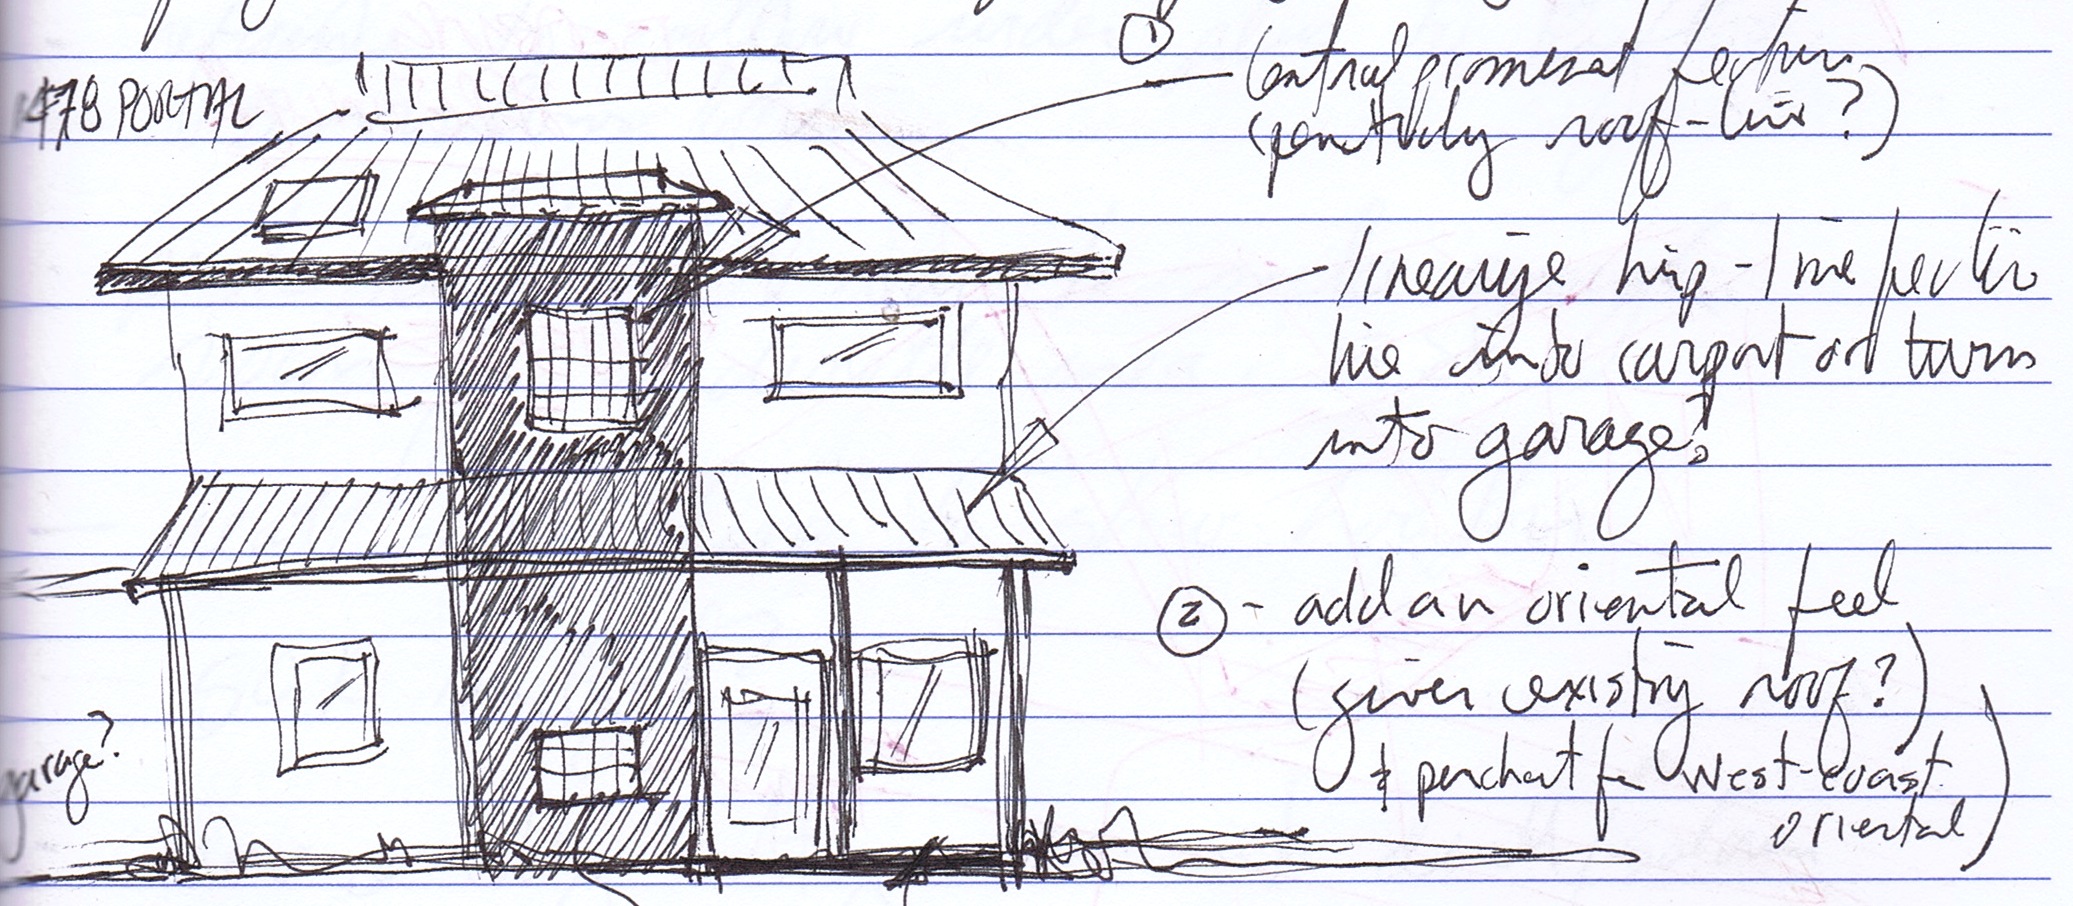 1478 PORTAL
①
Central prominent feature
(penetrating roof-line?)
linearize hip-line
line into carport and turn
into garage?
② - add an oriental feel
(given existing roof?)
& penchant for West-coast
oriental)
garage?